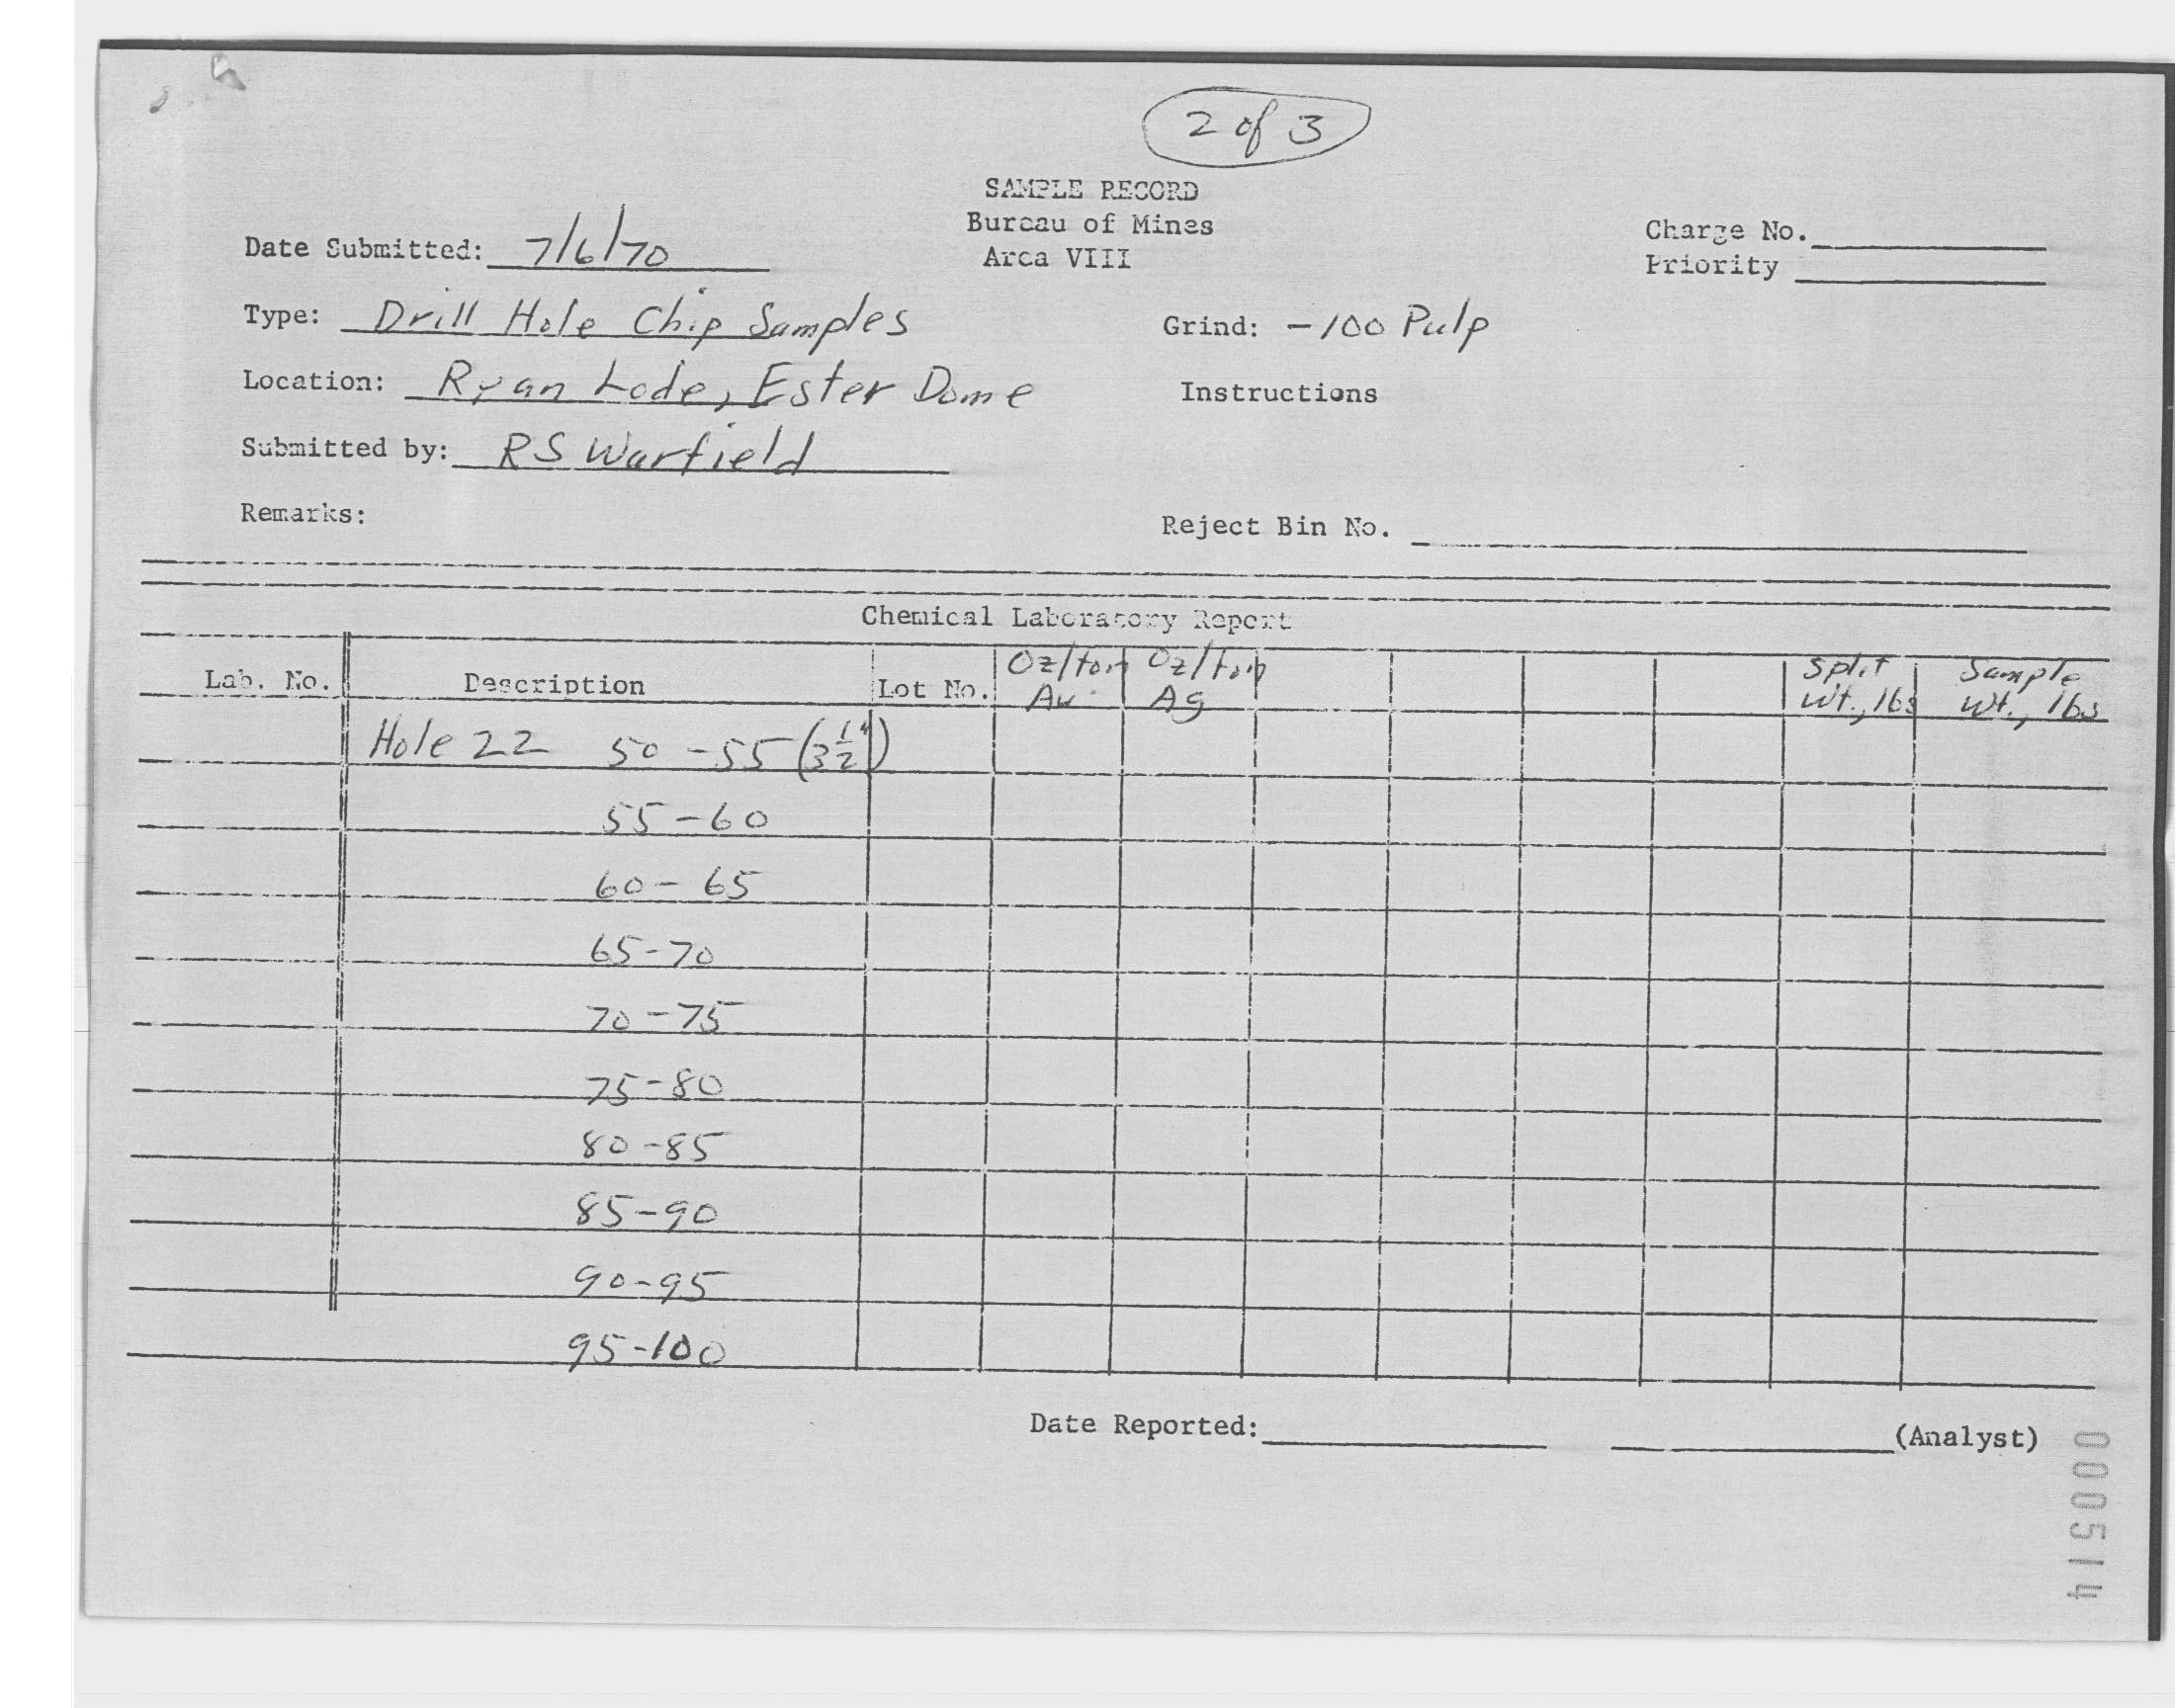 2 of 3
SAMPLE RECORD
Bureau of Mines
Area VIII
Date Submitted: 7/6/70
Charge No.
Priority
Type: Drill Hole Chip Samples
Grind: -100 Pulp
Location: Ryan Lode, Ester Dome
Instructions
Submitted by: RS Warfield
Remarks:
Reject Bin No.
Chemical Laboratory Report
Lab. No. Description Lot No. Oz/ton Au Oz/ton Ag Split Wt., lbs Sample Wt., lbs
Hole 22 50-55 (3 1/2")
55-60
60-65
65-70
70-75
75-80
80-85
85-90
90-95
95-100
Date Reported: (Analyst)
000514